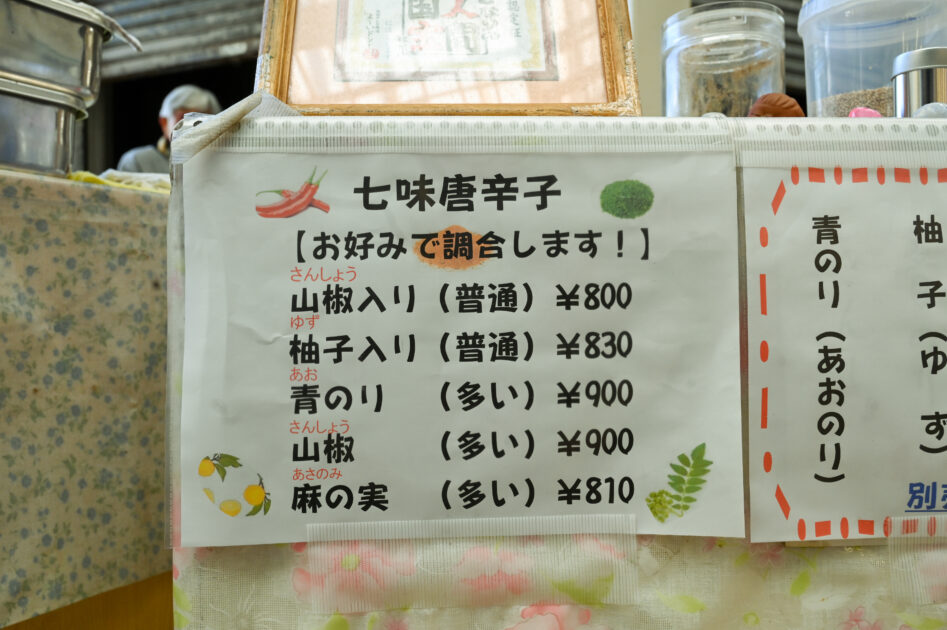 七味唐辛子
【お好みで調合します！】
さんしょう
山椒入り（普通）¥800
ゆず
柚子入り（普通）¥830
あお
青のり （多い）¥900
さんしょう
山椒 （多い）¥900
あさのみ
麻の実 （多い）¥810
柚子（ゆず）
青のり（あおのり）
別